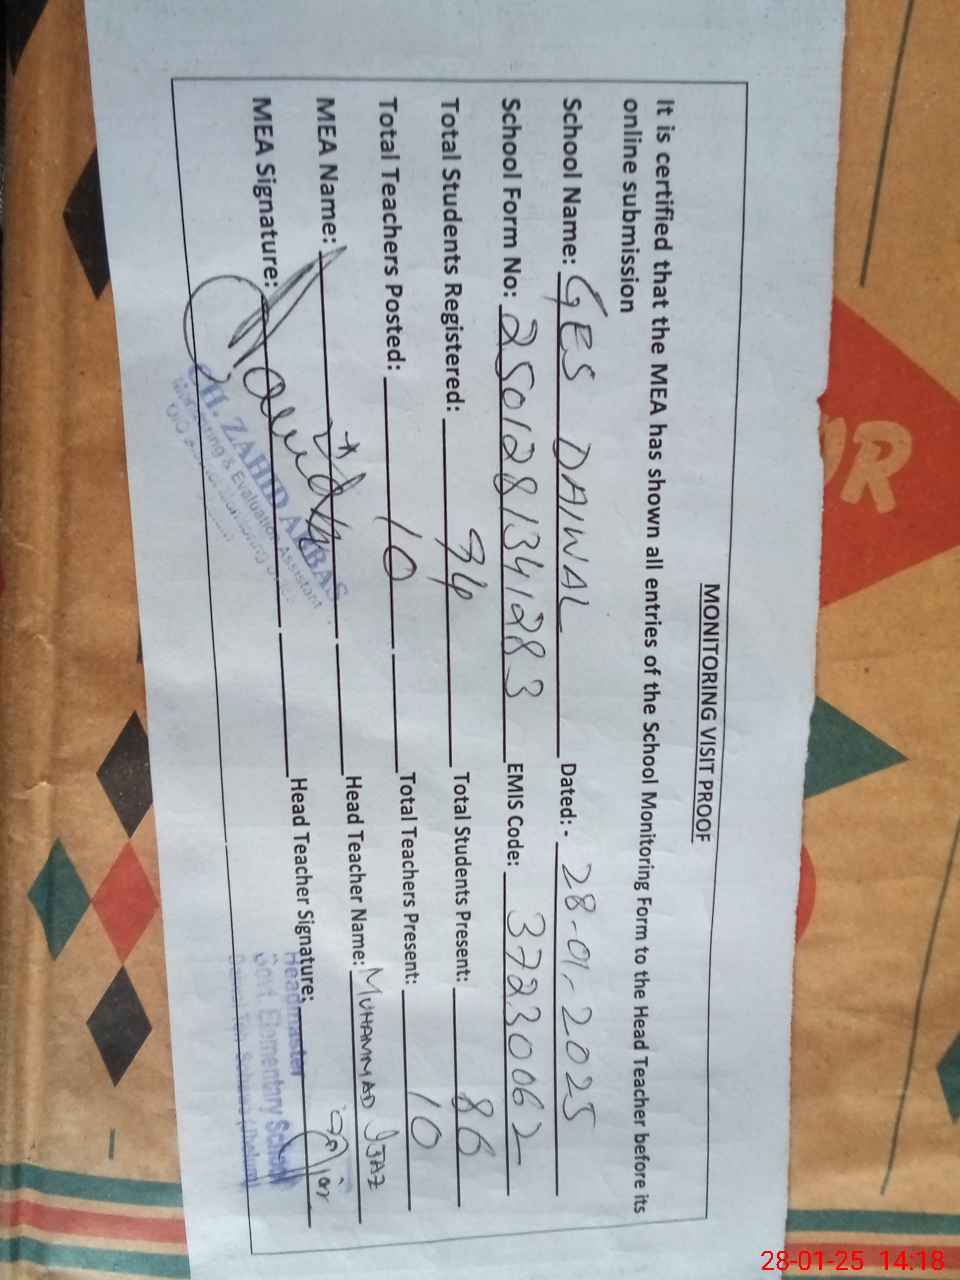 MONITORING VISIT PROOF
It is certified that the MEA has shown all entries of the School Monitoring Form to the Head Teacher before its
online submission
School Name: GES DAIWAL Dated:- 28-01-2025
School Form No: 2501281341283 EMIS Code: 37230062
Total Students Registered: 94 Total Students Present: 86
Total Teachers Posted: 10 Total Teachers Present: 10
MEA Name: Head Teacher Name: MUHAMMAD IJAZ
MEA Signature: Head Teacher Signature:
CH. ZAHID ABBAS
Monitoring & Evaluation Assistant
Headmaster
Govt. Elementary School
28-01-25 14:18